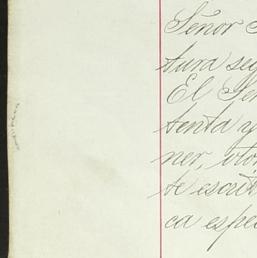 Señor
tura seg
El Señ
tenta y
ner, oto
te escrit
ca espec